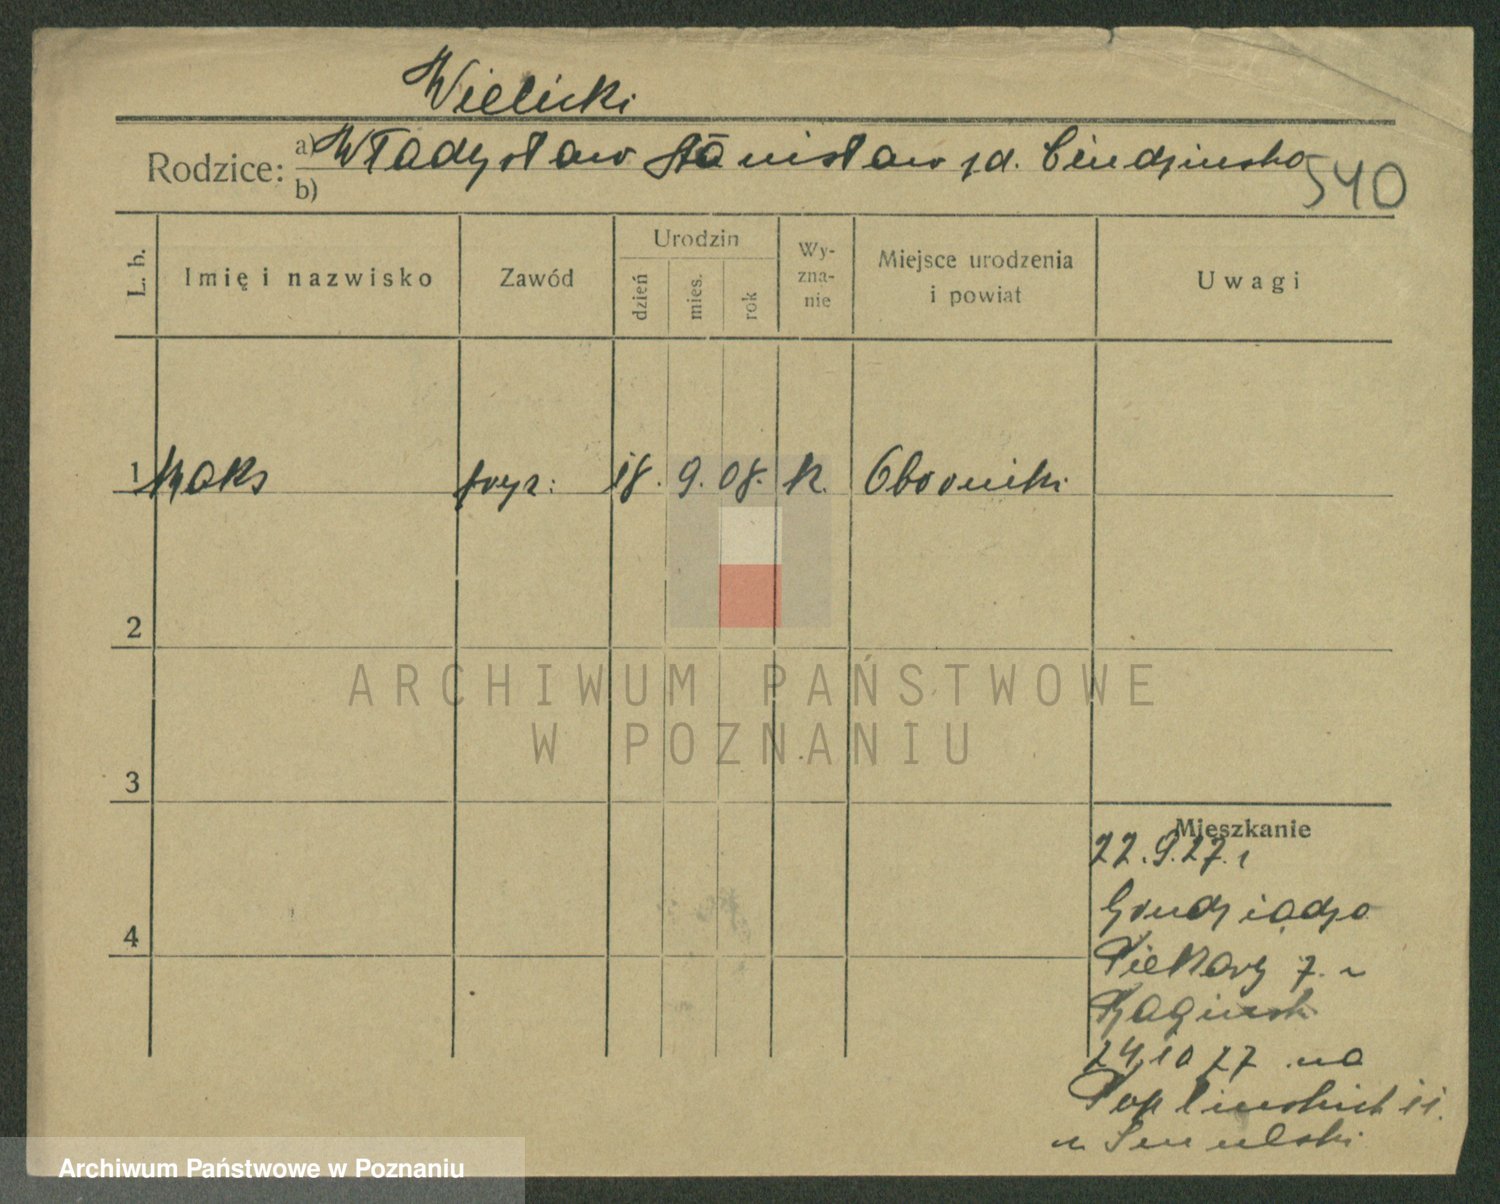 Wielicki
Rodzice: a) Władysław Stanisław zd.
b)
540
L. b. Imię i nazwisko Zawód Urodzin dzień mies. rok Wy-zna-nie Miejsce urodzenia i powiat Uwagi
1 Maks fryz: 18. 9. 08. k. Oborniki
2
ARCHIWUM PAŃSTWOWE
W POZNANIU
3
Mieszkanie
22.9.27. r
4
Piekary 7.
24 10 27 na
11.
Archiwum Państwowe w Poznaniu